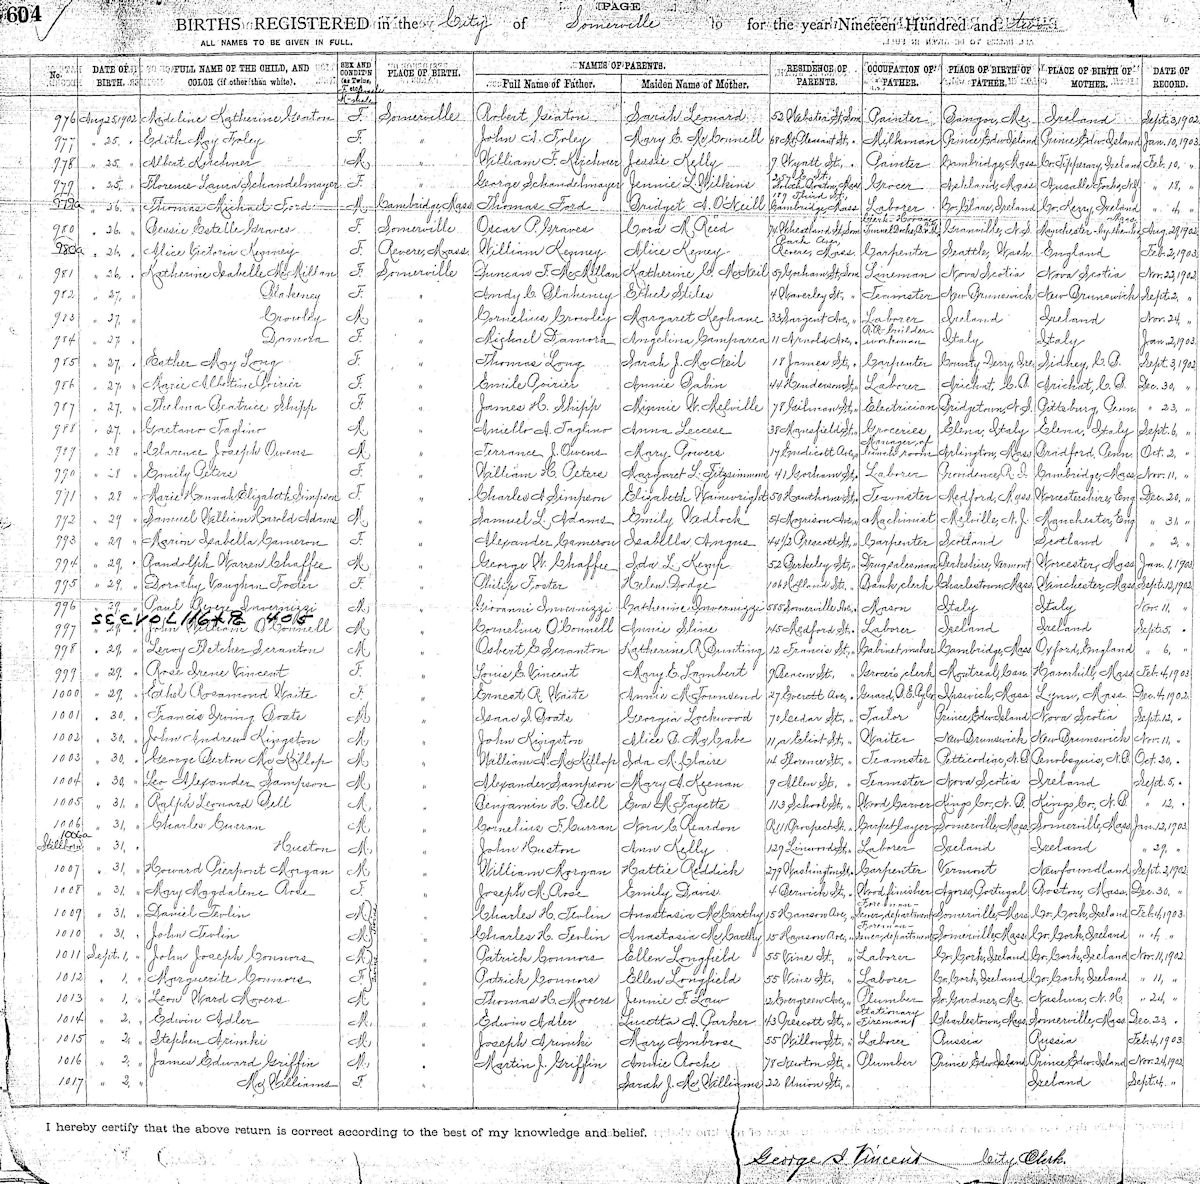 604
PAGE
BIRTHS REGISTERED in the City of Somerville for the year Nineteen Hundred and two
ALL NAMES TO BE GIVEN IN FULL.
No. DATE OF BIRTH. FULL NAME OF THE CHILD, AND COLOR (if other than white). SEX AND CONDIT'N as Twins, F-female M-male PLACE OF BIRTH. NAMES OF PARENTS. Full Name of Father. Maiden Name of Mother. RESIDENCE OF PARENTS. OCCUPATION OF FATHER. PLACE OF BIRTH OF FATHER. PLACE OF BIRTH OF MOTHER. DATE OF RECORD.
976 Aug 25, 1902 Madeline Katherine Geaton F. Somerville Robert Geaton Sarah Leonard 52 Webster St, Som Painter Bangor, Me. Ireland Sept. 3, 1902
977 " 25, " Edith May Foley F. " John J. Foley Mary E. McConnell 68 Mt Pleasant St, " Milkman Prince Edw. Island Prince Edw. Island Jan. 10, 1903
978 " 25, " Albert Kirchner M. " William F. Kirchner Jessie Kelly 9 Wyatt St, " Painter Cambridge, Mass Co. Tipperary, Ireland Feb. 10, "
979 " 25, " Florence Laura Schandelmayer F. " George Schandelmayer Jennie L. Wilkins South Boston, Mass Grocer Ashland, Mass Ausable Forks, N.Y. " 18, "
979a " 26, " Thomas Michael Ford M. Cambridge, Mass Thomas Ford Bridget A. O'Neill 99 Third St, Cambridge, Mass Laborer Co. Clare, Ireland Co. Kerry, Ireland " 4, "
980 " 26, " Bessie Estelle Graves F. Somerville Oscar P. Graves Cora M. Reed 74 Wheatland St, Som Granville, N.S. Manchester-by-the-Sea Mass. Aug. 29, 1902
980a " 26, " Alice Victoria Kenney F. Revere, Mass. William Kenney Alice Keney Park Ave, Revere, Mass. Carpenter Seattle, Wash. England Feb. 2, 1903
981 " 26, " Katherine Isabelle McMillan F. Somerville Duncan F. McMillan Katherine C. McNeil 59 Gorham St, Som Lineman Nova Scotia Nova Scotia Nov. 22, 1902
982 " 27, " Blakeney F. " Andy C. Blakeney Ethel Stiles 4 Waverley St, " Teamster New Brunswick New Brunswick Sept. 2, "
983 " 27, " Crowley M. " Cornelius Crowley Margaret Keohane 33 Sargent Ave, " Laborer Ireland Ireland Nov. 24, "
984 " 27, " Damora F. " Michael Damora Angelina Camparea 11 Arnolds Ave, " R.R. builder workman Italy Italy Jan. 2, 1903
985 " 27, " Esther May Long F. " Thomas Long Sarah J. McNeil 18 James St, " Carpenter County Derry, Ire Sidney, C.B. Sept. 3, 1902
986 " 27, " Marie Albertine Poirier F. " Emile Poirier Annie Babin 44 Henderson St, " Laborer Arichat, C.B. Arichat, C.B. Dec. 30, "
987 " 27, " Thelma Beatrice Shipp F. " James H. Shipp Minnie W. Melville 78 Gilman St, " Electrician Bridgetown, N.S. Pittsburg, Penn. " 23, "
988 " 27, " Gaetano Taglino M. " Aniello A. Taglino Anna Leccese 38 Mansfield St, " Groceries Elena, Italy Elena, Italy Sept. 6, "
989 " 28 " Clarence Joseph Owens M. " Terrance J. Owens Mary Powers 17 Endicott Ave, " Manager of lunch room Arlington, Mass Bradford, Penn. Oct. 2, "
990 " 28 " Emily Peters F. " William H. Peters Margaret L. Fitzsimmons 41 Gorham St, " Laborer Providence, R.I. Cambridge, Mass Nov. 11, "
991 " 29 " Marie Hannah Elizabeth Simpson F. " Charles A. Simpson Elizabeth Wainwright 50 Hawthorne St, " Teamster Medford, Mass. Worcestershire, Eng Dec. 20, "
992 " 29 " Samuel William Harold Adams M. " Samuel L. Adams Emily Wedlock 54 Morrison Ave, " Machinist Melville, N.J. Manchester, Eng " 31, "
993 " 29 " Marion Isabella Cameron F. " Alexander Cameron Isabella Angus 44 1/2 Prescott St, " Carpenter Scotland Scotland " 2, "
994 " 29, " Randolph Warren Chaffee M. " George W. Chaffee Ida L. Kemp 52 Berkeley St, " Drug salesman Berkshire, Vermont Worcester, Mass Jan. 1, 1903
995 " 29, " Dorothy Vaughan Foster F. " Philip Foster Helen Dodge 106 Holland St, " Bank, clerk Charlestown, Mass Winchester, Mass Sept. 12, 1902
996 " 29, " Paul George Invernizzi M. " Giovanni Invernizzi Catherine Invernizzi 585 Somerville Ave, " Mason Italy Italy Nov. 11, "
SEE VOL 711 P# 405
997 " 29, " John William O'Connell M. " Cornelius O'Connell Annie Sline 145 Medford St, " Laborer Ireland Ireland Sept. 5, "
998 " 29, " Leroy Fletcher Scranton M. " Osbert E. Scranton Katherine R. Bunting 12 Francis St, " Cabinet maker Cambridge, Mass Oxford, England " 6, "
999 " 29, " Rose Irene Vincent F. " Louis E. Vincent Mary E. Lambert 9 Beacon St, " Grocer's clerk Montreal, Can. Haverhill, Mass Feb. 4, 1903
1000 " 29, " Ethel Rosamond Waite F. " Ernest R. Waite Annie M. Townsend 27 Everett Ave, " Ipswich, Mass Lynn, Mass Dec. 4, 1902
1001 " 30, " Francis Irving Boats M. " Isaac S. Boats Georgia Lockwood 70 Cedar St, " Tailor Prince Edw. Island Nova Scotia Sept. 12, "
1002 " 30, " John Andrew Kingston M. " John Kingston Alice A. McCabe 11, a Eliot St, " Waiter New Brunswick New Brunswick Nov. 11, "
1003 " 30, " George Berton McKillop M. " William A. McKillop Ida M. Claire 14 Florence St, " Teamster Petticodiac, N.B. Penobsquis, N.B. Oct. 20, "
1004 " 30, " Leo Alexander Sampson M. " Alexander Sampson Mary A. Keenan 9 Allen St, " Teamster Nova Scotia Ireland Sept. 5, "
1005 " 31, " Ralph Leonard Bell M. " Benjamin H. Bell Eva M. Fayette 113 School St, " Wood Carver Kings Co., N.B. Kings Co., N.B. " 12, "
1006 " 31, " Charles Curran M. " Cornelius F. Curran Nora C. Reardon R 111 Prospect St, " Carpet layer Somerville, Mass Somerville, Mass Jan. 12, 1903
1006a Stillborn " 31, " Huston M. " John Huston Ann Kelly 129 Linwood St, " Laborer Ireland Ireland " 29, "
1007 " 31, " Howard Pierpont Morgan M. " William Morgan Hattie Reddick 279 Washington St, " Carpenter Vermont Newfoundland Sept. 2, 1902
1008 " 31, " Mary Magdalene Rose F. " Joseph M. Rose Emily Davis 4 Berwick St, " Wood finisher Azores, Portugal Boston, Mass. Dec. 30, "
1009 " 31, " Daniel Tevlin M. Twins " Charles H. Tevlin Anastasia McCarthy 15 Hanson Ave, " Foreman- Sewer, department Somerville, Mass Co. Cork, Ireland Feb. 4, 1903
1010 " 31, " John Tevlin M. " Charles H. Tevlin Anastasia McCarthy 15 Hanson Ave, " Foreman- Sewer, department Somerville, Mass. Co. Cork, Ireland " 4, "
1011 Sept. 1, " John Joseph Connors M. Twins " Patrick Connors Ellen Longfield 55 Vine St, " Laborer Co. Cork, Ireland Co. Cork, Ireland Nov. 11, 1902
1012 " 1, " Marguerite Connors F. " Patrick Connors Ellen Longfield 55 Vine St, " Laborer Co. Cork, Ireland Co. Cork, Ireland " 11, "
1013 " 1, " Leon Ward Movers M. " Thomas H. Movers Jennie F. Law 12 Evergreen Ave, " Plumber So. Gardner, Me. Nashua, N.H. " 24, "
1014 " 2, " Edwin Adler M. " Edwin Adler Lucetta A. Parker 43 Prescott St, " Stationary Fireman Charlestown, Mass Somerville, Mass Dec. 23, "
1015 " 2, " Stephen Arimki M. " Joseph Arimki Mary Ambrose 55 Willow St, " Laborer Russia Russia Feb. 4, 1903
1016 " 2, " James Edward Griffin M. " Martin J. Griffin Annie Roche 78 Newton St, " Plumber Prince Edw. Island Prince Edw. Island Nov. 24, 1902
1017 " 2, " McWilliams F. Sarah J. McWilliams 22 Union St, " Ireland Sept. 4, "
I hereby certify that the above return is correct according to the best of my knowledge and belief.
George I. Vincent City Clerk.